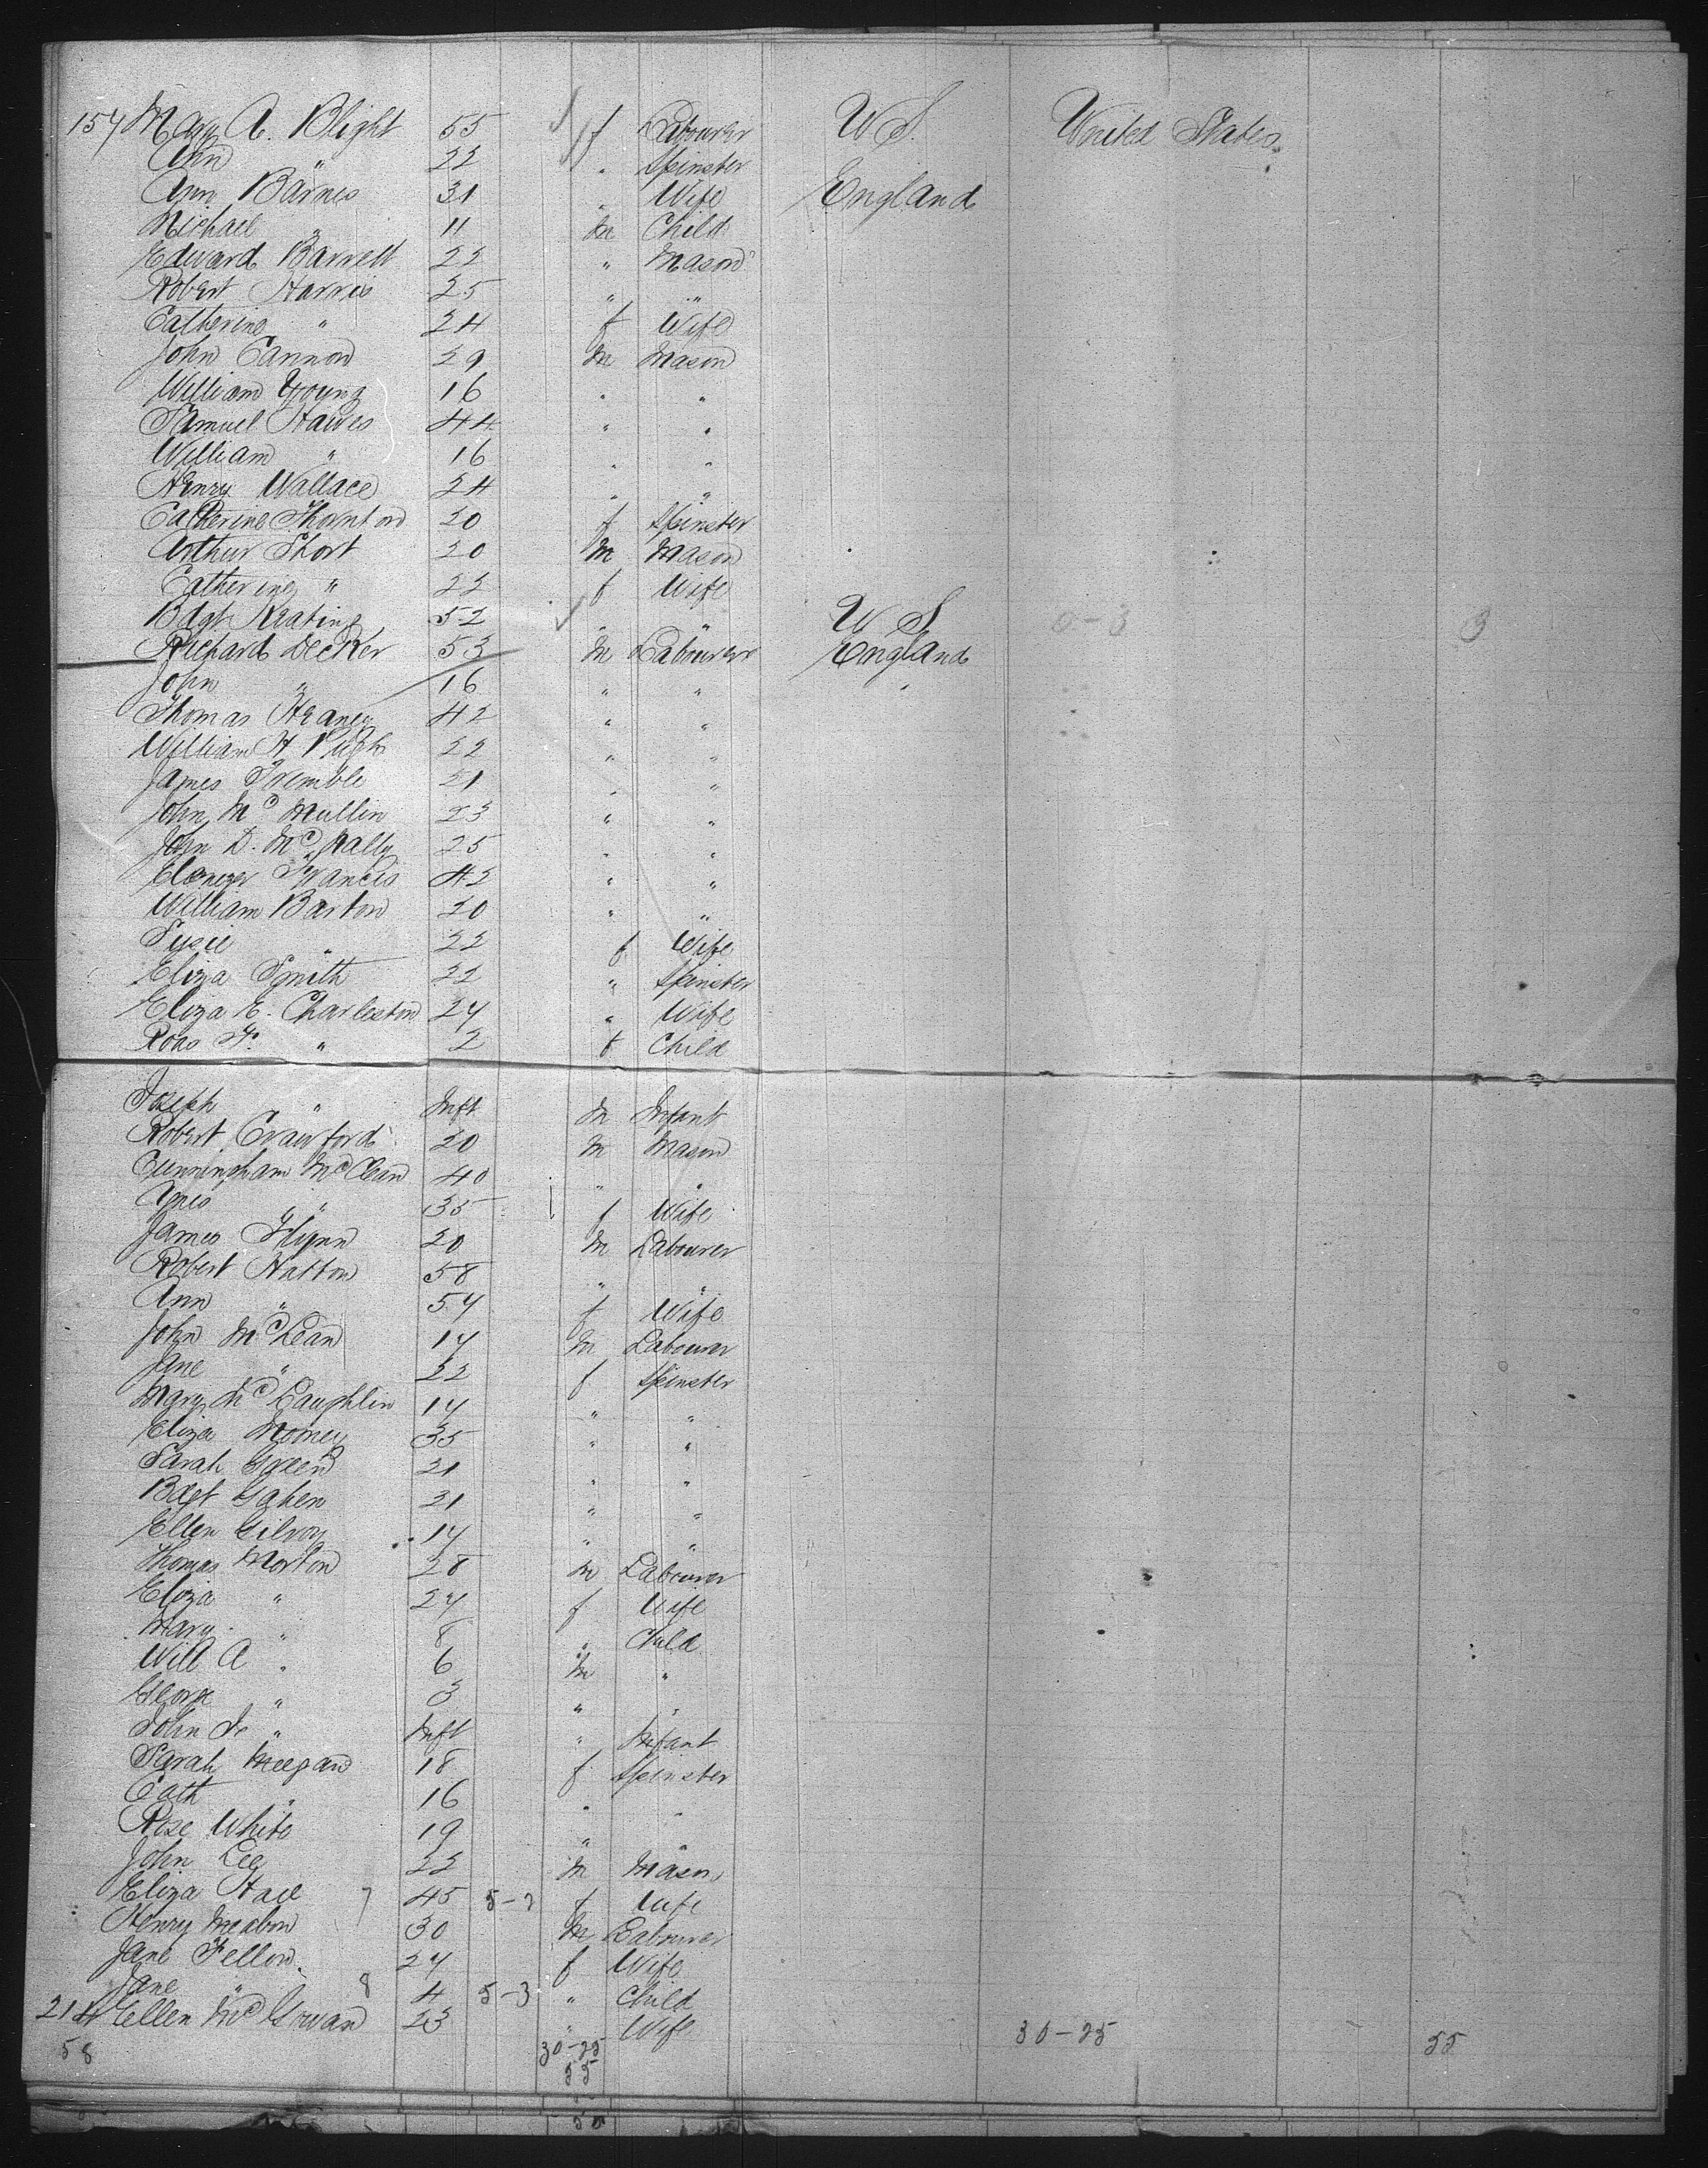 157 Mary A. Blight 55 f Labourer U S. United States
Ann " 22 " Spinster
Ann Barnes 31 " Wife England
Michael " 11 m Child
Edward Barrett 22 " Mason
Robert Harris 25 " "
Catherine " 24 f Wife
John Cannon 29 m Mason
William Young 16 " "
Samuel Hawes 44 " "
William " 16 " "
Henry Wallace 24 " "
Catherine Thornton 20 f Spinster
Arthur Short 20 m Mason
Catherine " 22 f Wife
Bdgt Keating 52 " " U S 0-3 3
Richard Decker 53 m Labourer England
John " 16 " " "
Thomas Heaney 42 " "
William H Pugh 22 " "
James Tremble 21 " "
John McMullin 23 " "
John D. McNally 25 " "
Ebenezer Francis 42 " "
William Barton 20 " "
Susie " 22 f Wife
Eliza Smith 22 " Spinster
Eliza E. Charleston 27 " Wife
Roas F. " 2 f Child
Joseph " Inft m Infant
Robert Crawford 20 m Mason
Cunningham McClean 40 " "
Agnes " 35 f Wife
James Flynn 20 m Labourer
Robert Hatton 58 " "
Ann " 57 f Wife
John McLean 17 m Labourer
Jane " 22 f Spinster
Mary McLaughlin 17 " "
Eliza 35 " "
Sarah Green 21 " "
Bdgt Gahen 21 " "
Ellen Gilroy 17 " "
Thomas Morton 28 m Labourer
Eliza " 27 f Wife
Mary " 8 " Child
Will A " 6 m "
George " 3 " "
John Je " Inft " Infant
Sarah Meegan 18 f Spinster
Cath " 16 " "
Rose White 19 " "
John Lee 22 m Mason
Eliza Hall 7 45 5-7 f Wife
Henry Meabon 30 m Labourer
Jane Fellow 27 f Wife
Jane " 8 4 5-3 " Child
214 Ellen McGowan 23 " Wife 30-25 55
58 30-25
55
50